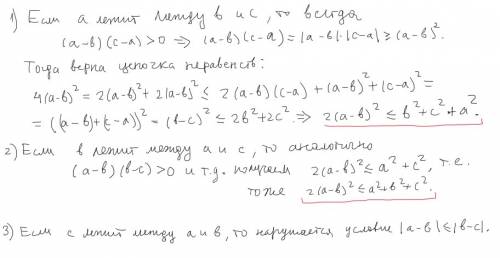 1) Если a лежит между b и c, то всегда
(a-b)(c-a)>0 ⇒ (a-b)(c-a)=|a-b|·|c-a| ≥ (a-b)².
Тогда верна цепочка неравенств:
4(a-b)² = 2(a-b)² + 2(a-b)² ≤ 2(a-b)(c-a) + (a-b)² + (c-a)² =
= ((a-b)+(c-a))² = (b-c)² ≤ 2b²+2c². ⇒ 2(a-b)² ≤ b²+c²+a².
2) Если b лежит между a и c, то аналогично
(a-b)(b-c)>0 и т.д. получаем 2(a-b)² ≤ a²+c², т.е.
тоже 2(a-b)² ≤ a²+b²+c².
3) Если c лежит между a и b, то нарушается условие |a-b| ≤ |b-c|.